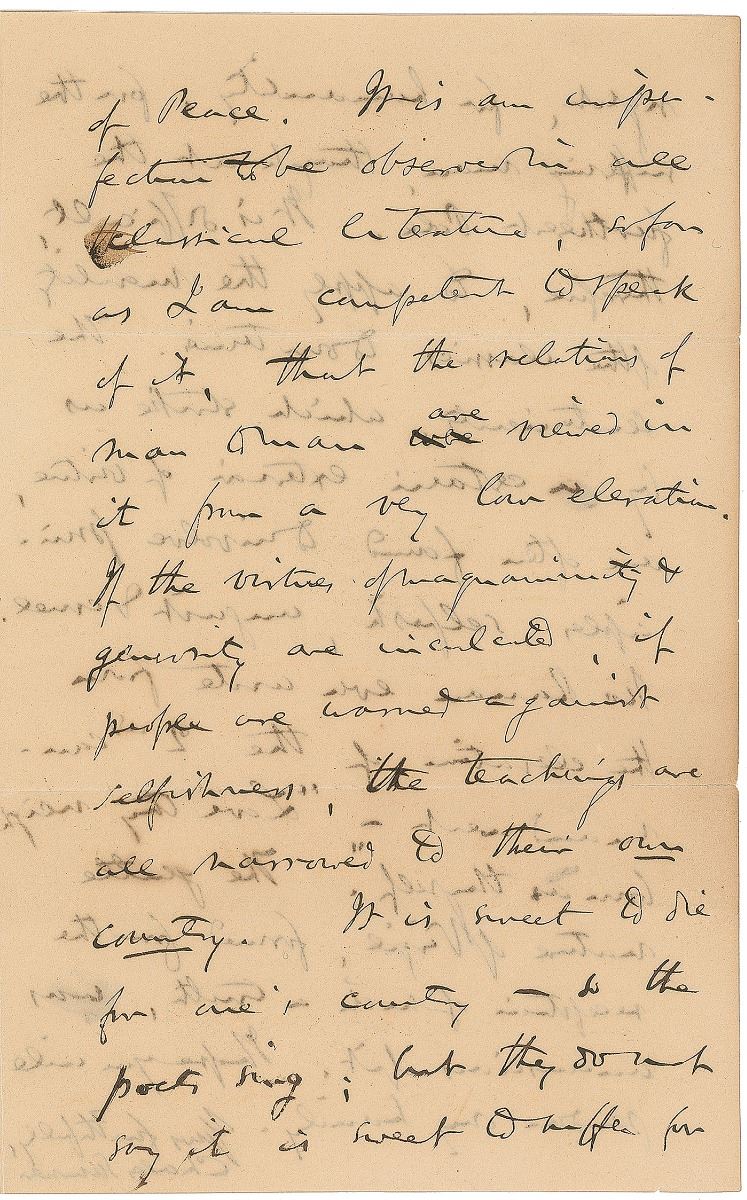 of Peace. It is an imper-
fection to be observed in all
classical literature, so far
as I am competent to speak
of it, that the relations of
man to man are viewed in
it from a very low elevation.
If the virtues of magnanimity &
generosity are inculcated, if
people are warned against
selfishness, the teachings are
all narrowed to their own
country. It is sweet to die
for one's country — so the
poets sing; but they do not
say it is sweet to suffer for